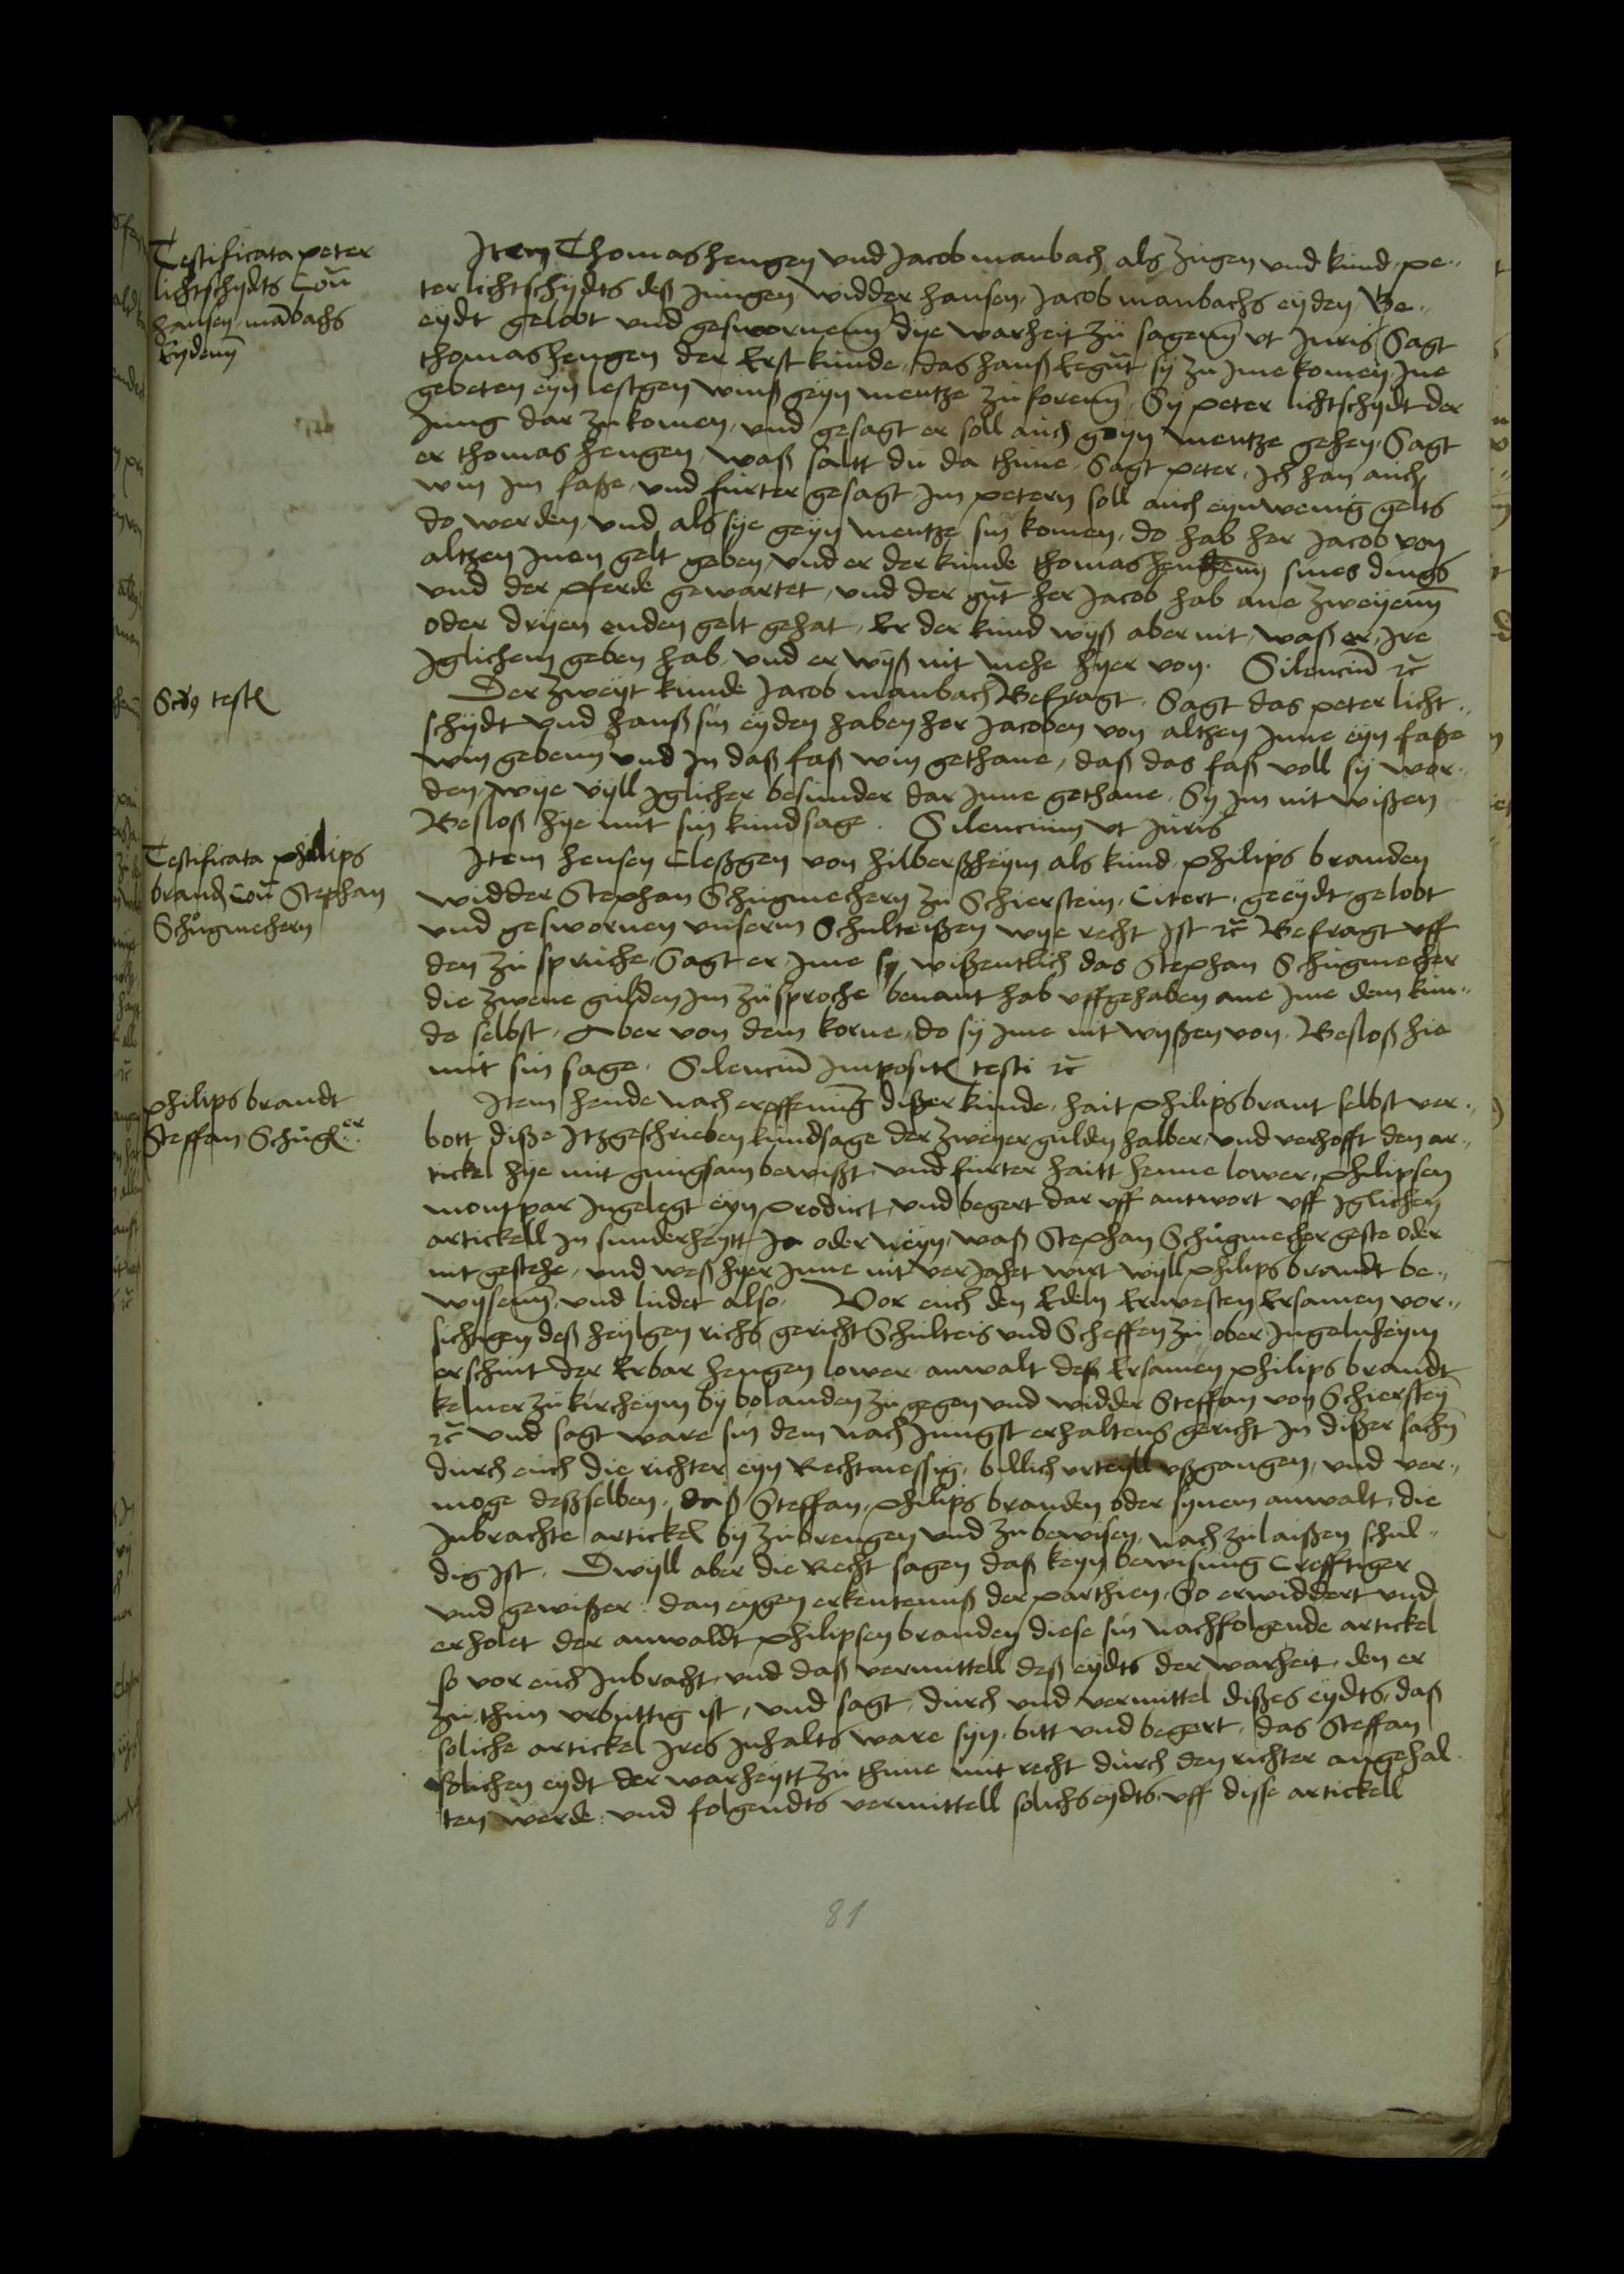 Testificata peter
lichtschydts Con
hansen manbachs
Eydenn
Item Thomashengen vnd Jacob manbach als zugen vnd kund pe..
ter lichtschydts deß jungen widder hansen Jacob manbachs eyden Be..
eydt gelobt vnd gesworuenn dye warheit zu sagenn vt juris Sagt
thomashengen der Erst kunde das hanß sy zu jme komen jne
gebeten eyn lestgen winß geyn mentze zu forenn Sy peter lichtschydt der
Jung dar zu komen vnd gesagt er soll auch geyn mentze gehen Sagt
er thomas hengen waß saltt du da thune Sagt peter ich han auch
win im faße vnd furter gesagt jm petern soll auch eyn wenig gelts
do werden vnd als sye geyn mentze sin komen do hab her Jacob von
altzen jnen gelt geben vnd er der kunde thomas sines dings
vnd der pferde gewartet vnd der gut her Jacob hab ane zweyenn
oder dryen enden gelt gehat Er der kund wyß aber nit waß er jre
jglichem geben hab vnd er wyß nit mehe hyer von Silenciu rc
Scds testis
Der zweyt kunde Jacob manbach Befragt Sagt das peter licht..
schydt vnd hanß sin eyden haben her Jacoben von altzen jnne eyn faße
win gebenn vnd in daß faß win gethane daß das faß voll sy wor..
den wye vyll jglicher besunder dar jnne gethane Sy jm nit wißen
Besloß hye mit sin kundsage Silencium vt juris
Testificata philips
brand Con Stephan
Schugmechern
Item hensen Cleßgen von hilberßheym als kund philips branden
widder Stephan Schugmechern zu Schierstein Citert geeydt gelobt
vnd gesworuen vnserm Schulteißen wye recht ist rc Befragt vff
den zu spruche Sagt er jme sy wißentlich das Stephan Schugmecher
die zwene gulden jm zusproche benant hab vffgehaben ane jme dem kun..
de selbst Aber von dem korne do sy jme nit wyßen von Besloß hie
mit sin sage Silenciu imposit testi rc
philips brandt
Steffan Schug er
Item heude nach eroffenung dißer kunde hait philips brant selbst ver..
bott diße itzgeschrieben kundsage der zweyer gulden halber vnd verhofft den ar..
tickel hye mit gnugsam bewißt vnd furter haitt henne lower philipsen
montpar ingelegt eyn product vnd begert dar vff antwort vff jglichen
artickell in sunderheytt Ja oder neyn waß Stephan Schugmecher geste oder
nit gestehe vnd weß hyer jnne nit verjahet wirt wyll philips brandt be..
wysenn vnd ludet also Vor euch den Edeln Ernvesten Ersamen vor..
sichtigen deß heylgen richs gericht Schulteis vnd Scheffen zu ober Ingelnheym
erschint der Erbar hengen lower anwalt deß Ersamen philips brandt
kelner zu kircheym by bolanden zu gegen vnd widder Steffan von Schiersteyn
rc vnd sagt ware sin dem nach jungst erhaltens gericht in dißer sachn
durch euch die richter eyn Rechtmessig billich vrteyll vßgangen vnd ver..
moge deßselben daß Steffan philips branden oder synem anwalt die
jnbrachte artickel by zubrengen vnd zu bewisen nach zulaißen schul..
dig ist Dwyll aber die Recht sagen daß keyn bewisung Crefftiger
vnd gewißer dan eygen erkentenuß der parthien So erwiddert vnd
erholet der anwaldt philipsen branden diese sin nachfolgende artickel
so vor euch jnbracht vnd daß vermittell deß eydts der warheit den er
zu thun vrbuttig ist vnd sagt durch vnd vermittel dißes eydts daß
soliche artickel jres jnhalts ware syn bitt vnd begert das Steffan
solichen eydt der warheytt zu thune mit recht durch den richter angehal
ten werde vnd folgendts vermittell solichs eydts vff disse artickell
81